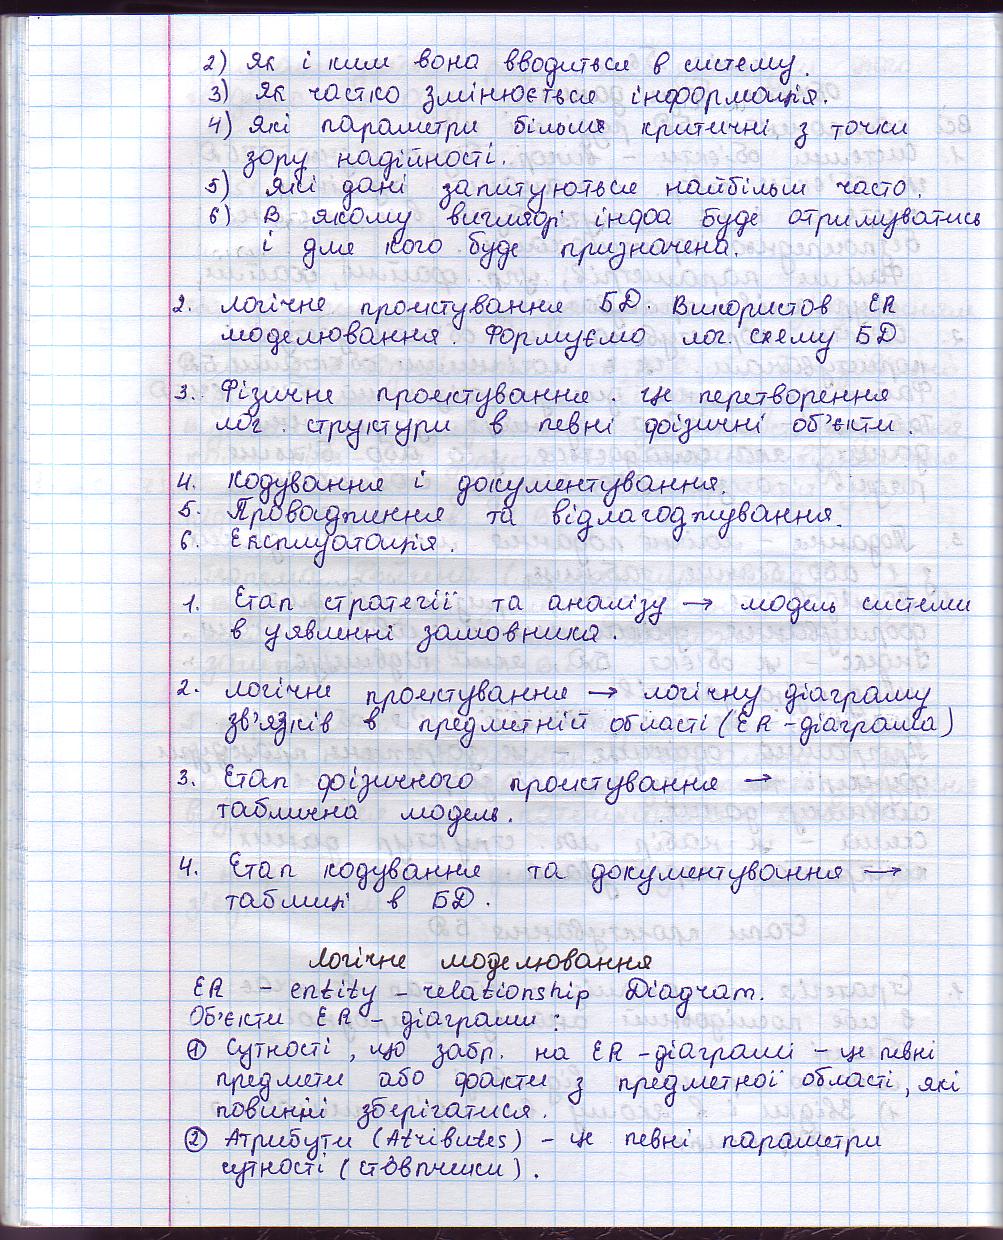 2) Як і ким вона вводиться в систему.
3) Як частко змінюється інформація.
4) Які параметри більш критичні з точки
зору надійності.
5) Які дані запитуються найбільш часто.
6) В якому вигляді інфа буде отримуватись
і для кого буде призначена.
2. Логічне проєктування БД. Використов ER
моделювання. Формуємо лог. схему БД
3. Фізичне проєктування. Це перетворення
лог. структури в певні фізичні об'єкти.
4. Кодування і документування.
5. Провадження та відлагоджування.
6. Експлуатація.
1. Етап стратегії та аналізу → модель системи
в уявленні замовника.
2. Логічне проєктування → логічну діаграму
зв'язків в предметній області (ER-діаграма)
3. Етап фізичного проєктування →
таблична модель.
4. Етап кодування та документування →
таблиці в БД.
Логічне моделювання
ER – entity – relationship Diagram.
Об'єкти ER – діаграми:
① Сутності, що забр. на ER – діаграмі – це певні
предмети або факти з предметної області, які
повинні зберігатися.
② Атрибути (Atributes) – це певні параметри
сутності (стовпчики).